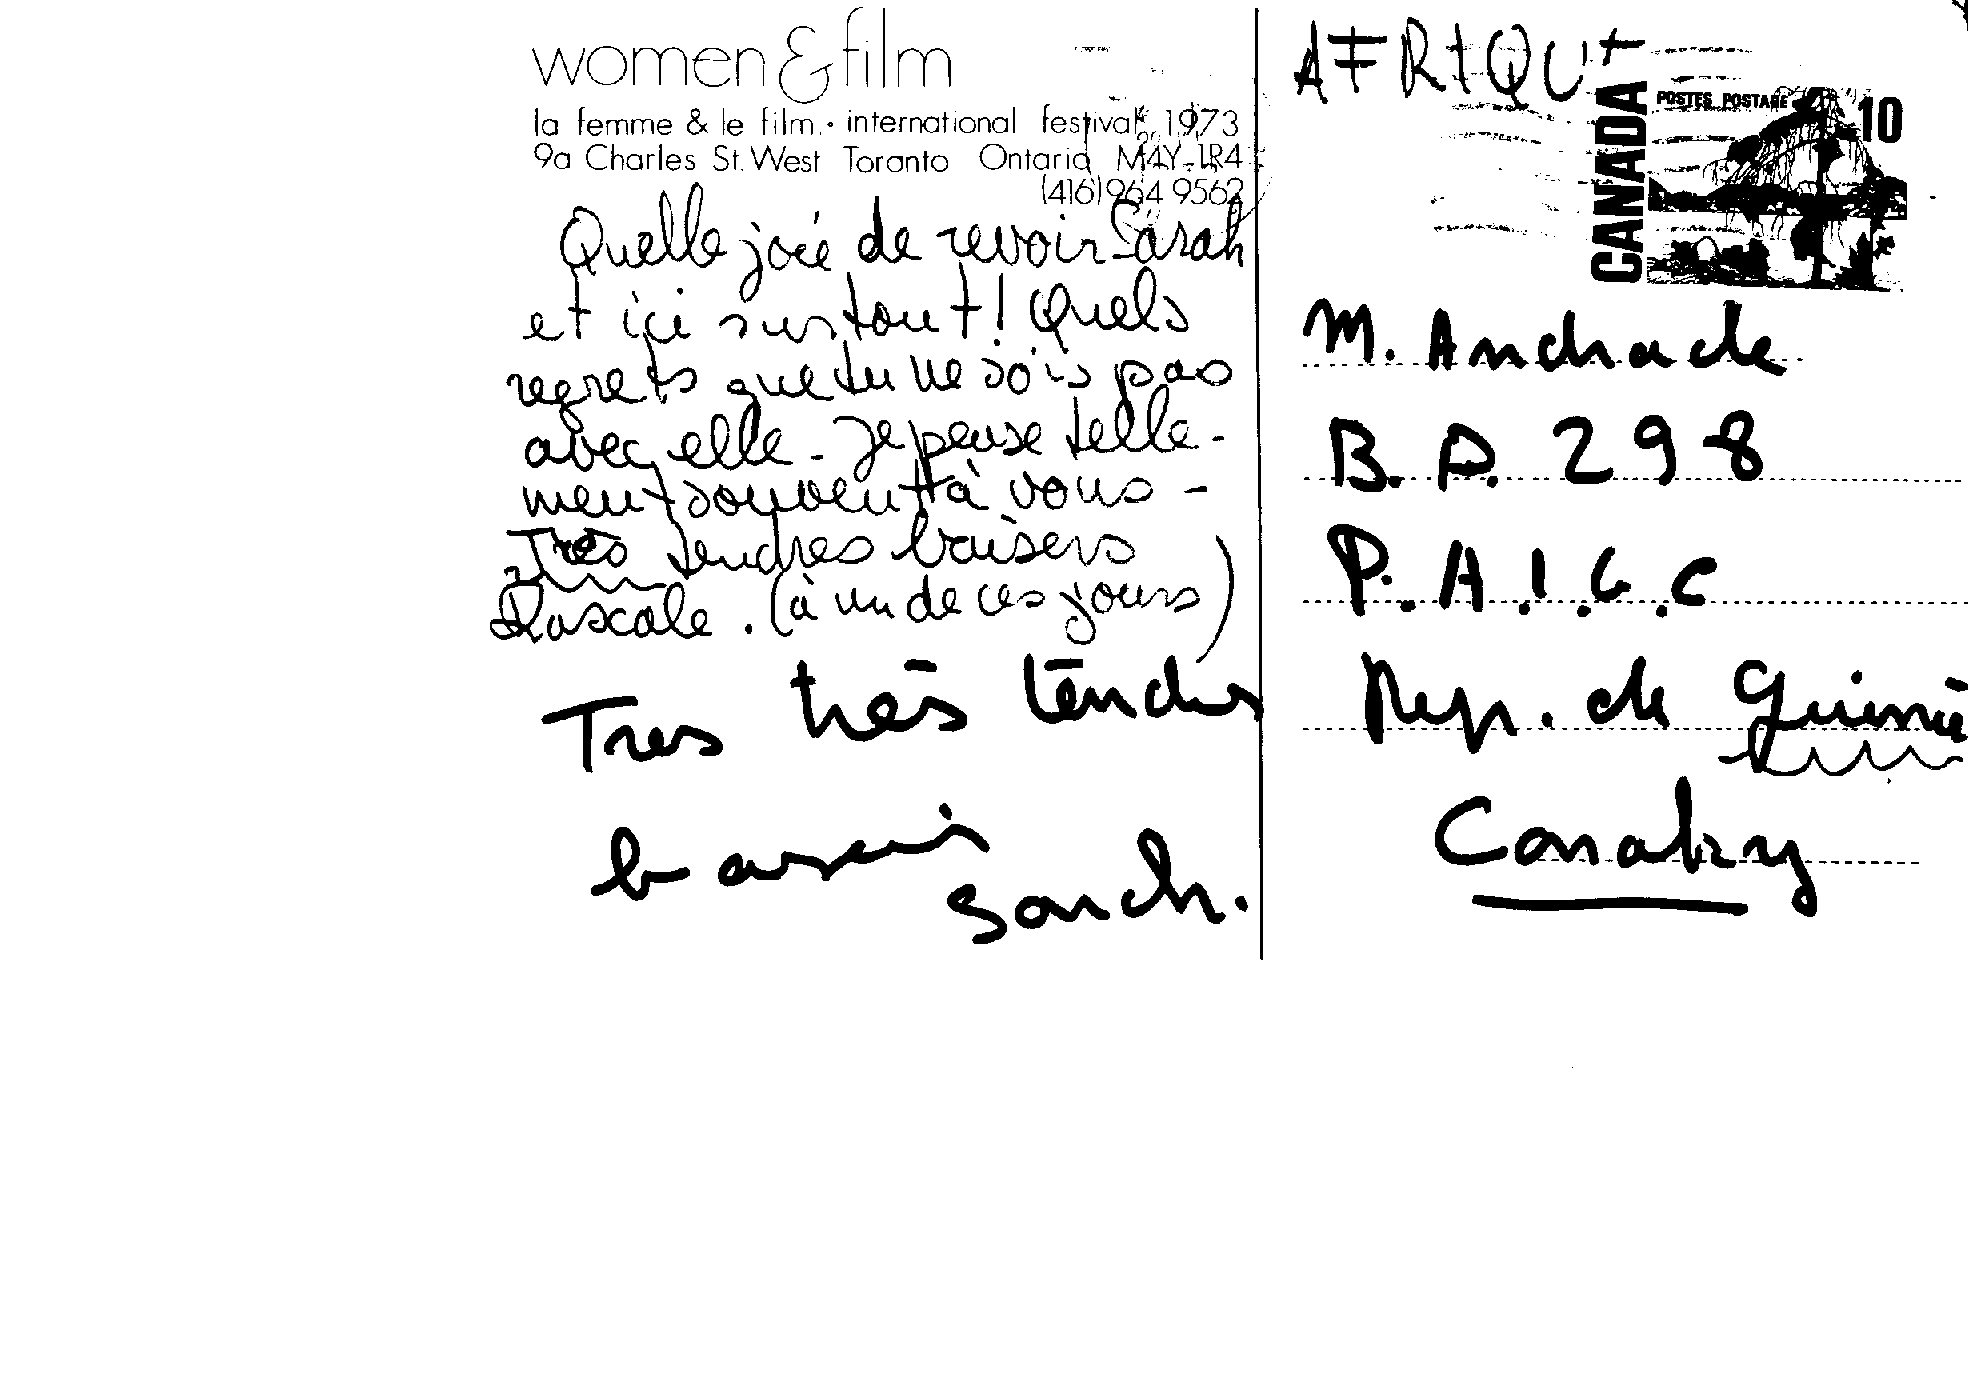 women & film
la femme & le film. • international festival 1973
9a Charles St. West Toranto Ontario M4Y-1R4
(416) 964 9562
Quelle joie de revoir Sarah
et ici surtout! Quels
regrets que tu ne sois pas
avec elle - Je pense telle-
ment souvent à vous -
Très tendres baisers
Pascale. (à un de ces jours)
Tres très tendres
baisers
Sarah.
AFRIQUE
CANADA
POSTES POSTAGE 10
M. Andrade
B. P. 298
P. A. I. G. C
Rep. de Guinée
Conakry